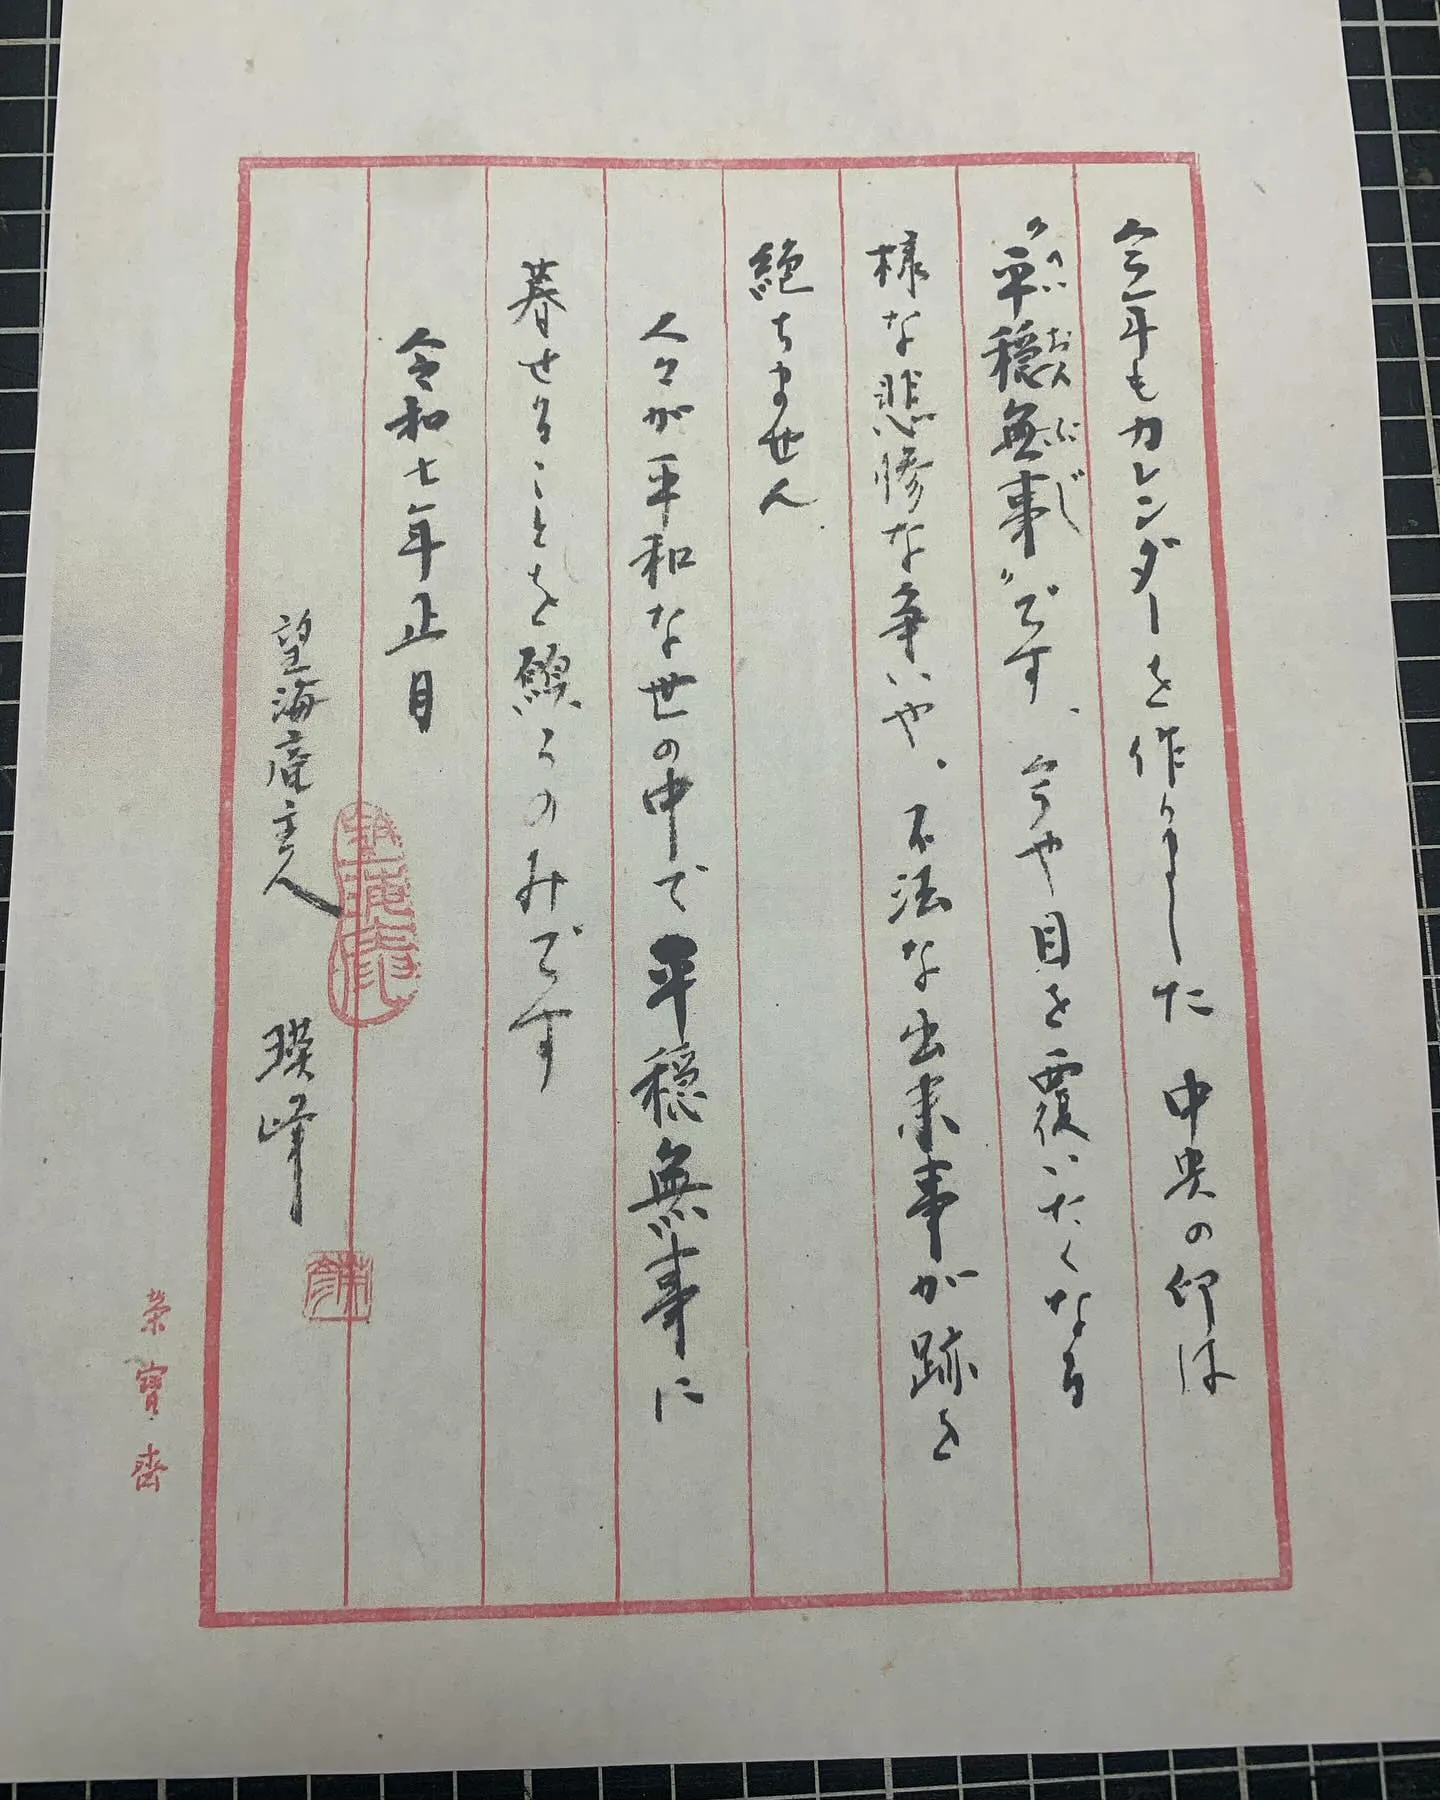 今年もカレンダーを作りました 中央の印は
〝平穏無事〟です、今や目を覆いたくなる
へいおんぶじ
様な悲惨な争いや、不法な出来事が跡を
絶ちません
人々が平和な世の中で平穏無事に
暮せることを願うのみです
令和七年正月
望海庵主人 瑛峰
榮寶齋